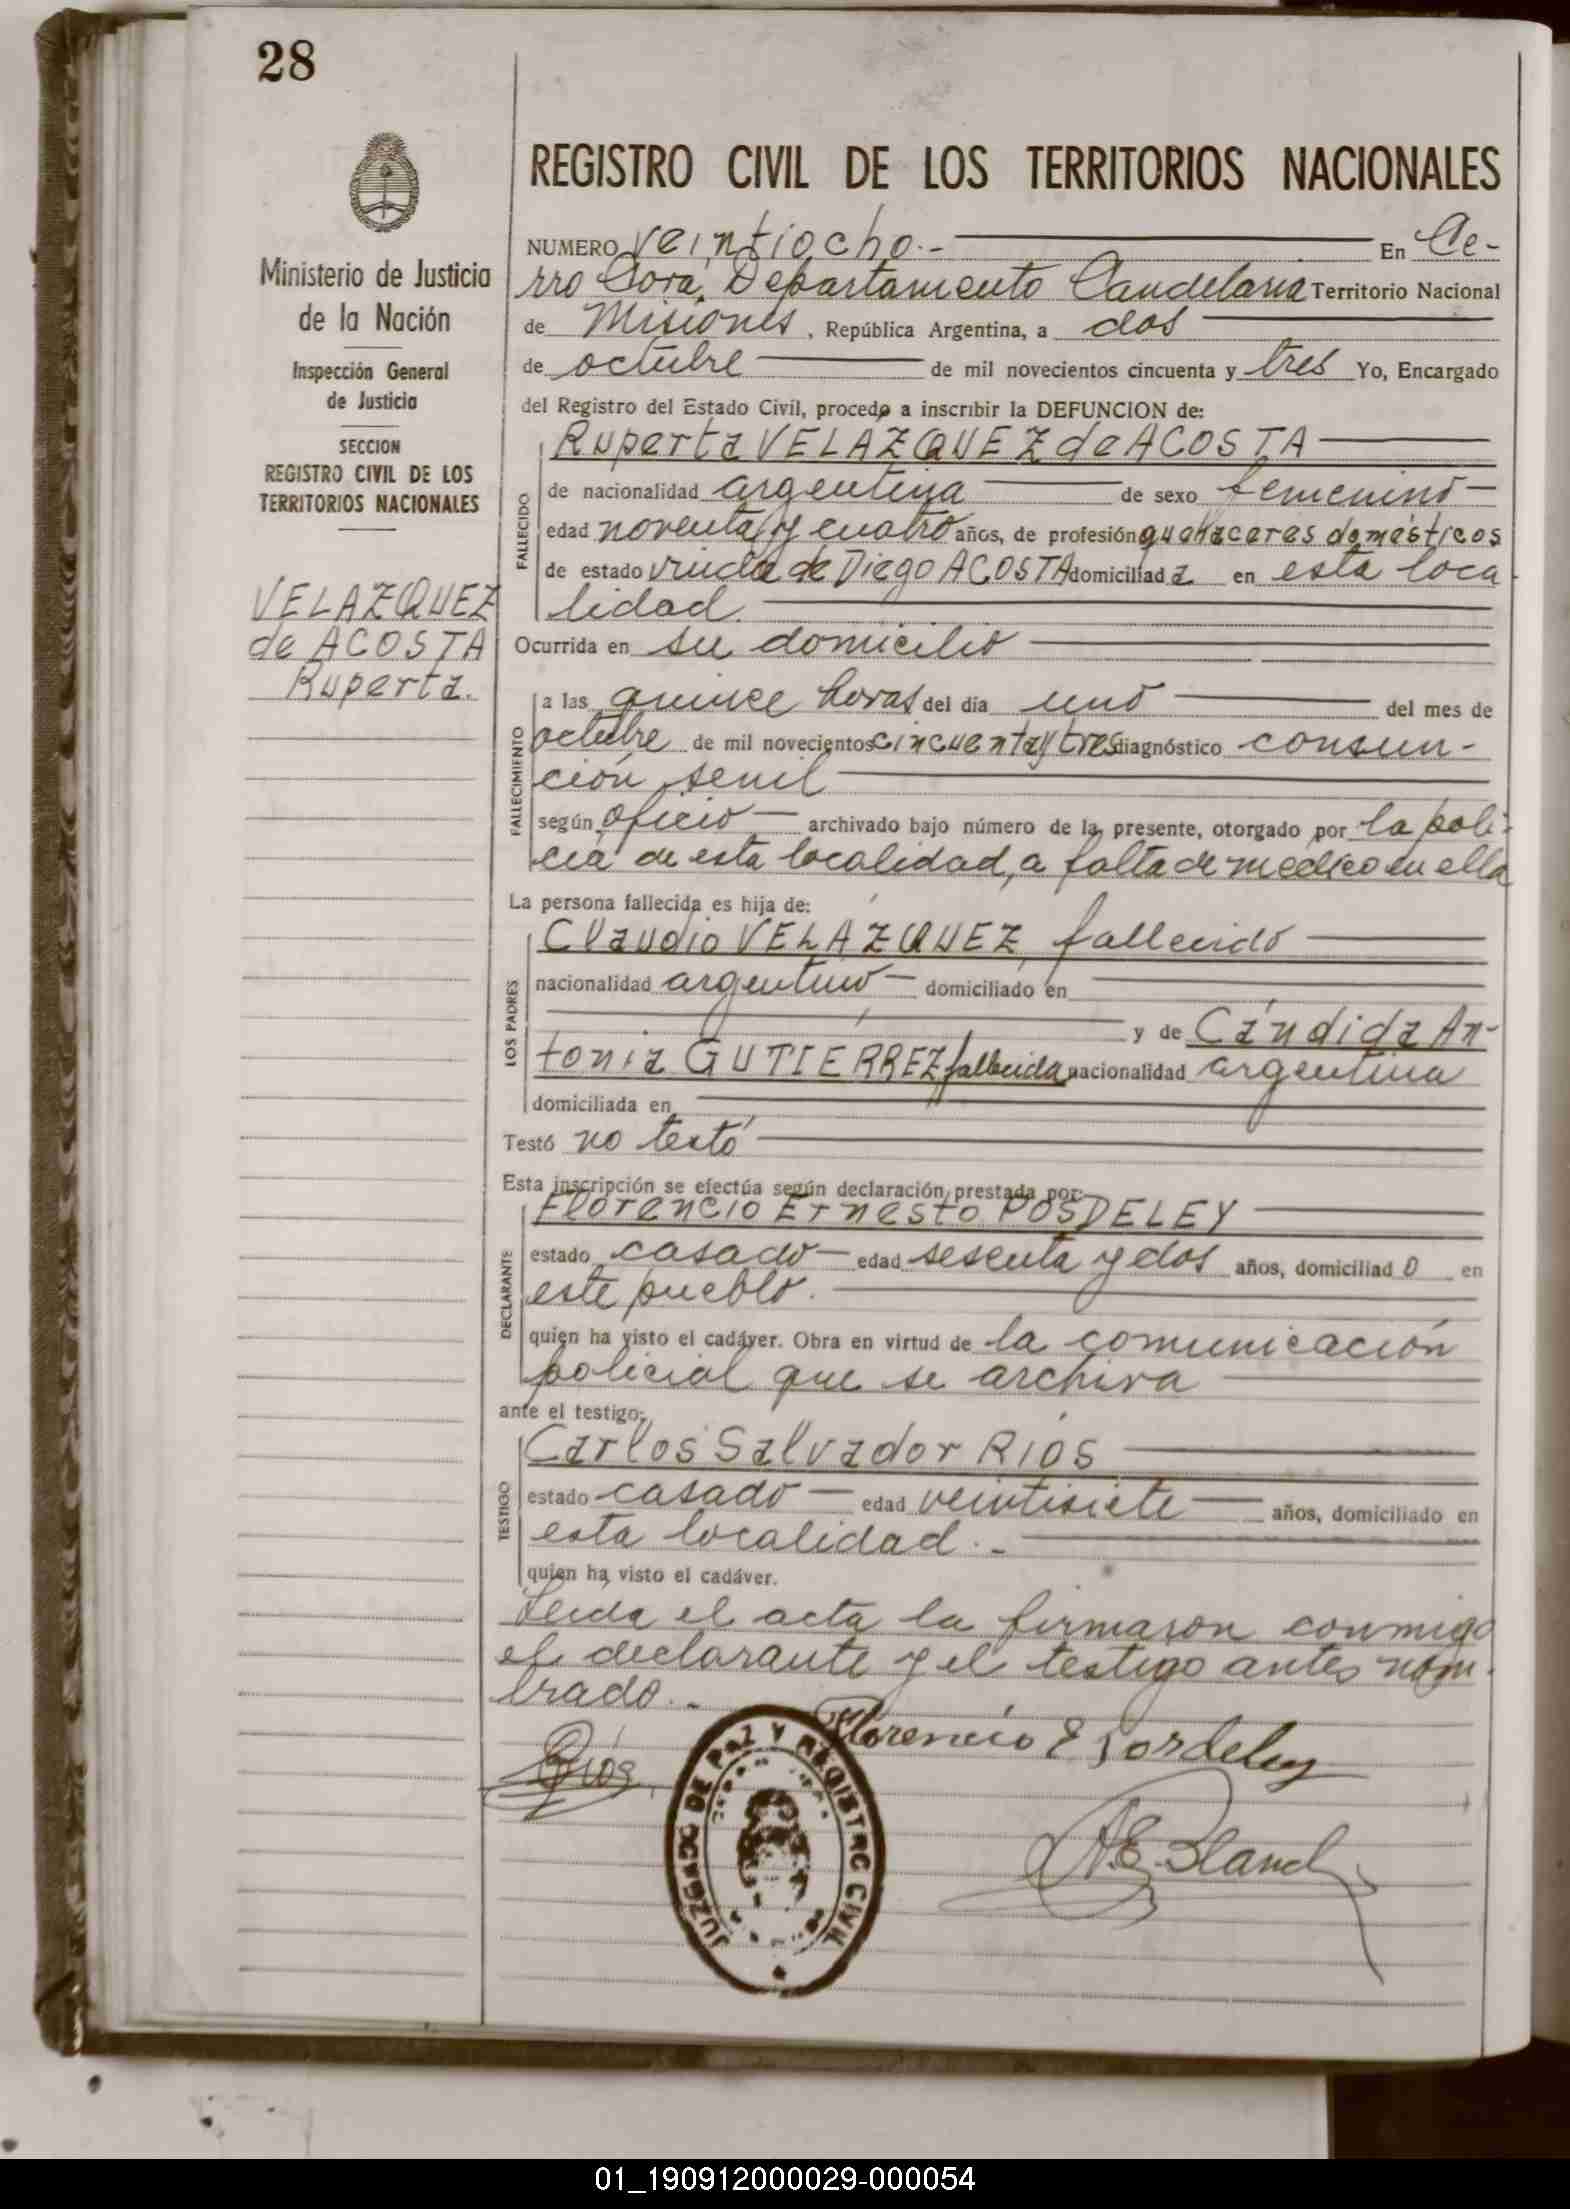 28
REGISTRO CIVIL DE LOS TERRITORIOS NACIONALES
Ministerio de Justicia
de la Nación
Inspección General
de Justicia
SECCION
REGISTRO CIVIL DE LOS
TERRITORIOS NACIONALES
VELAZQUEZ
de ACOSTA
Ruperta.
NUMERO veintiocho.- En Ce-
rro Corá, Departamento Candelaria Territorio Nacional
de Misiones, República Argentina, a dos
de octubre de mil novecientos cincuenta y tres Yo, Encargado
del Registro del Estado Civil, procedo a inscribir la DEFUNCION de:
Ruperta VELAZQUEZ de ACOSTA
FALLECIDO
de nacionalidad argentina de sexo femenino
edad noventa y cuatro años, de profesión quehaceres domésticos
de estado viuda de Diego ACOSTA domiciliada en esta loca
lidad.
Ocurrida en su domicilio
FALLECIMIENTO
a las quince horas del día uno del mes de
octubre de mil novecientos cincuenta y tres diagnóstico consun-
ción senil
según oficio archivado bajo número de la presente, otorgado por la poli-
cía de esta localidad, a falta de médico en ella
La persona fallecida es hija de:
LOS PADRES
Claudio VELAZQUEZ, fallecido
nacionalidad argentino domiciliado en
y de Cándida An-
tonia GUTIERREZ fallecida nacionalidad argentina
domiciliada en
Testó no testó
Esta inscripción se efectúa según declaración prestada por:
DECLARANTE
Florencio Ernesto POSDELEY
estado casado edad sesenta y dos años, domiciliado en
este pueblo.
quien ha visto el cadáver. Obra en virtud de la comunicación
policial que se archiva
ante el testigo:
TESTIGO
Carlos Salvador RIOS
estado casado edad veintisiete años, domiciliado en
esta localidad.-
quien ha visto el cadáver.
Leida el acta la firmaron conmigo
el declarante y el testigo antes nom-
brado.-
Florencio E Posdeley
Ríos
JUZGADO DE PAZ Y REGISTRO CIVIL
A.E. Bland
01_190912000029-000054